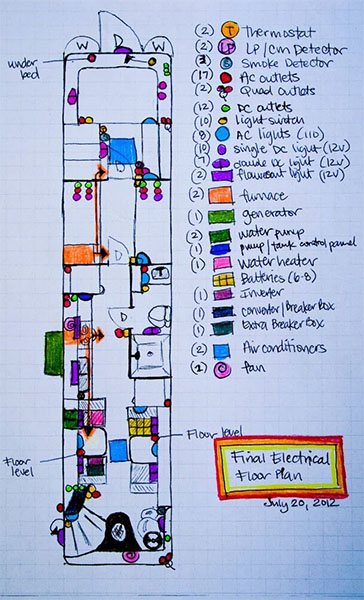 W D W
under bed
D
D
D
Floor level
Floor level
(2) T Thermostat
(2) LP LP/Cm Detector
Smoke Detector
(17) AC outlets
(2) Quad outlets
(12) DC outlets
(10) light switch
(8) AC lights (110)
(10) single DC light (12V)
(7) double DC light (12V)
(2) flourescent light (12V)
(2) furnace
(1) generator
(2) water pump
(1) pump/tank control pannel
(1) water heater
Batteries (6-8)
(1) Inverter
(1) converter/Breaker Box
(1) Extra Breaker Box
(2) Air conditioners
fan
Final Electrical
Floor Plan
July 20, 2012